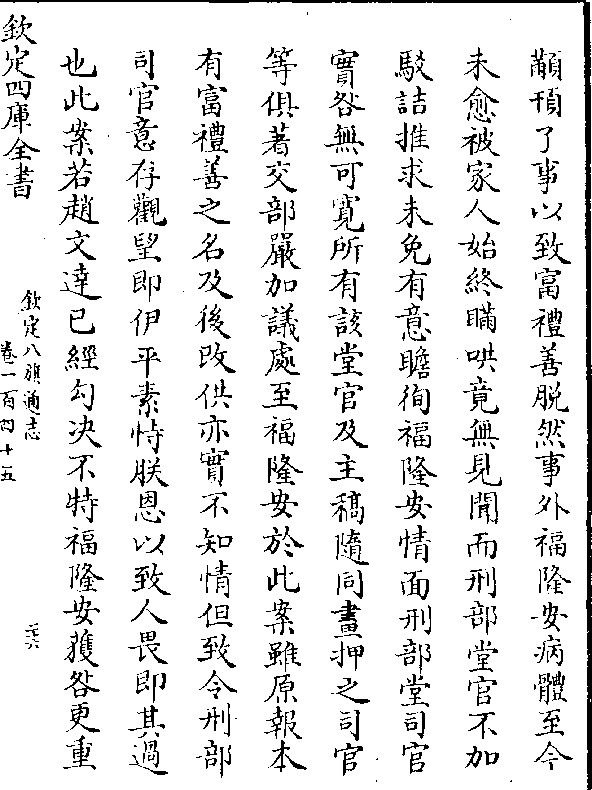 顢頇了事以致富禮善脫然事外福隆安病體至今
未愈被家人始終瞞哄竟無見聞而刑部堂官不加
駁詰推求未免有意瞻徇福隆安情面刑部堂司官
實咎無可寛所有該堂官及主稿隨同畫押之司官
等俱著交部嚴加議處至福隆安於此案雖原報本
有富禮善之名及後改供亦實不知情但致令刑部
司官意存觀望即伊平素恃朕恩以致人畏即其過
也此案若趙文達已經勾决不特福隆安獲咎更重
欽定四庫全書
欽定八旗通志
卷一百四十五
二十六